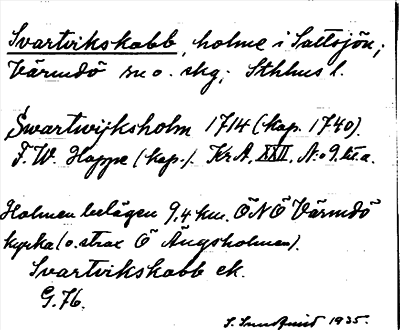 Svartvikskobb, holme i Saltsjön;
Värmdö sn o. skg; Sthlms l.
Swartwijksholm 1714 (kop. 1740).
F. W. Hoppe (kop.). Kr A, XXII, N:o 9. lit. a.
Holmen belägen 9,4 km. ÖNÖ Värmdö
kyrka (o. strax Ö Ängsholmen).
Svartvikskobb ek.
G. 76.
S. Sundqvist 1935.